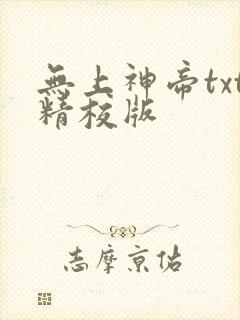 無上神帝txt
精校版
志摩京佑